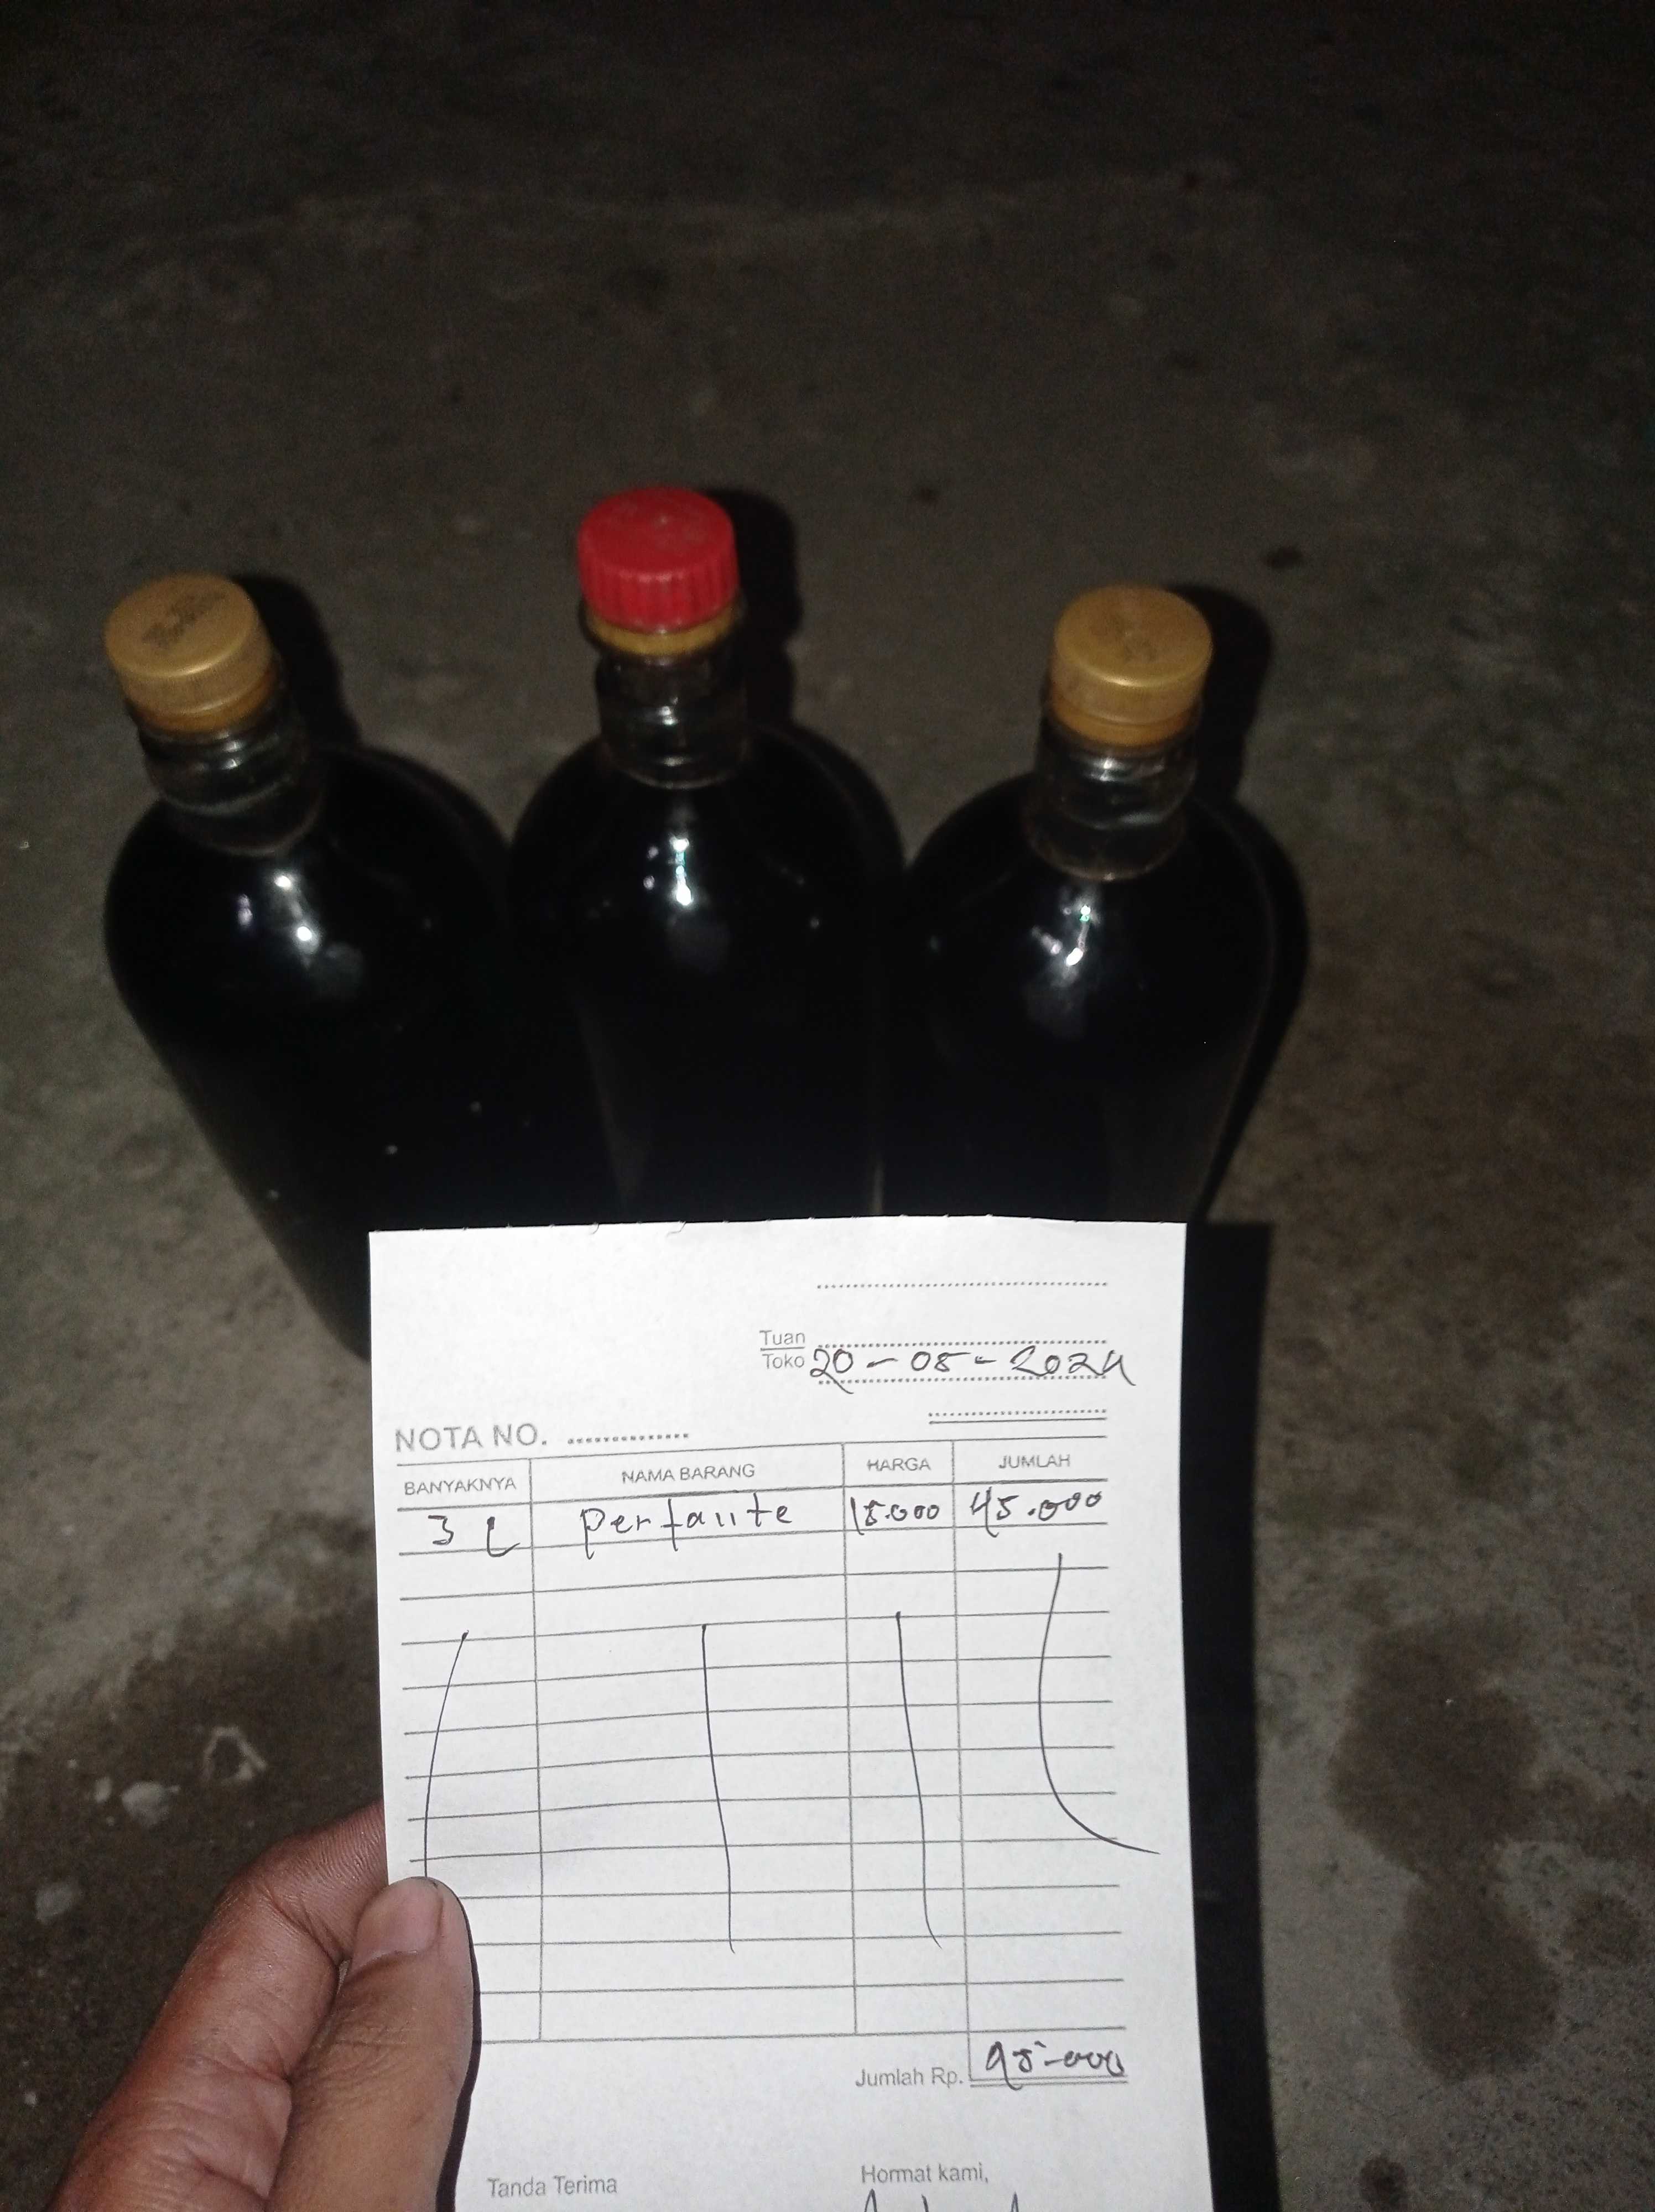 Tuan
Toko 20-05-2024
NOTA NO. ..............
BANYAKNYA NAMA BARANG HARGA JUMLAH
3 L Pertalite 15.000 45.000
Jumlah Rp. 45.000
Tanda Terima Hormat kami,